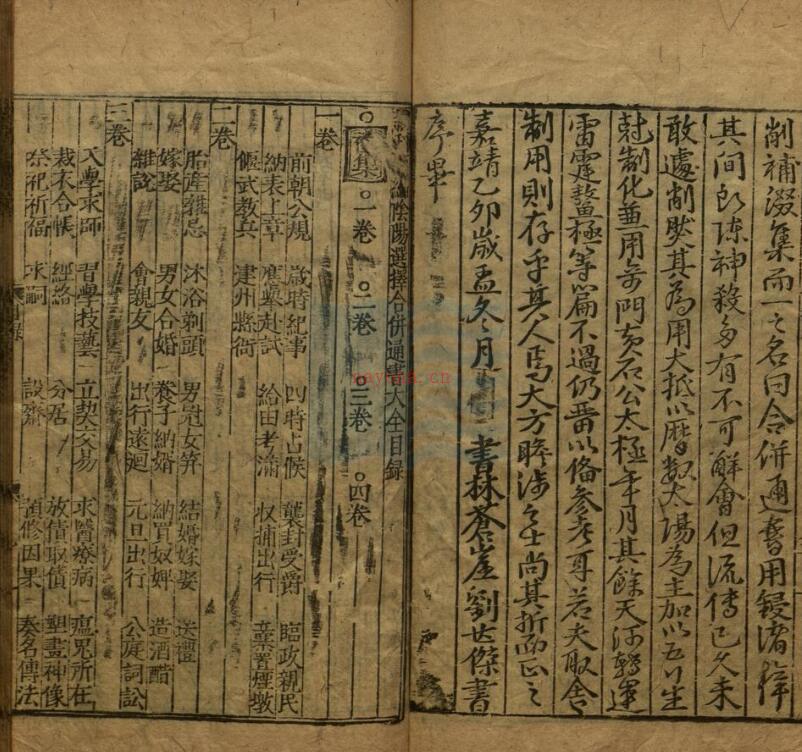 削補湿集而一之名曰合併通書用鋟諸梓
其間即陳神殺多有不可解會但流傳已久未
敢遽削然其為用大抵以曆数太陽為主加以五行生
尅制化並用奇門黄石公太極年月其餘天河轉運
雷霆
極等篇不過仍舊以俻参考耳若夫取舍
制用則存乎其人焉大方
渉之士尚其折而正之
嘉靖乙卯歳孟冬之月
書林蒼崖劉世傑書
序畢
陰陽選擇合併通書大全目録
集 一卷 二卷 三卷 四卷
一卷
前朝公規 歳時紀事 四時占候 襲封受爵 臨政親民
納表上章 應舉赴試 給由考滿 收捕出行 立寨置煙墩
偃武教兵 建州縣衙
二卷
胎産雜忌 沐浴剃頭 男冠女笄 結婚嫁娶 送禮
嫁娶 男女合婚 養子納婿 納買奴婢 造酒醋
雜說 會親友 出行遠廻 元旦出行 公庭詞訟
三卷
入學求師 習學技藝 立契交易 求醫療病 瘟鬼所在
裁衣合帳 經絡 分居 放債取債 塑畫神像
祭祀祈福 求嗣 設齋 預修因果 奏名傳法